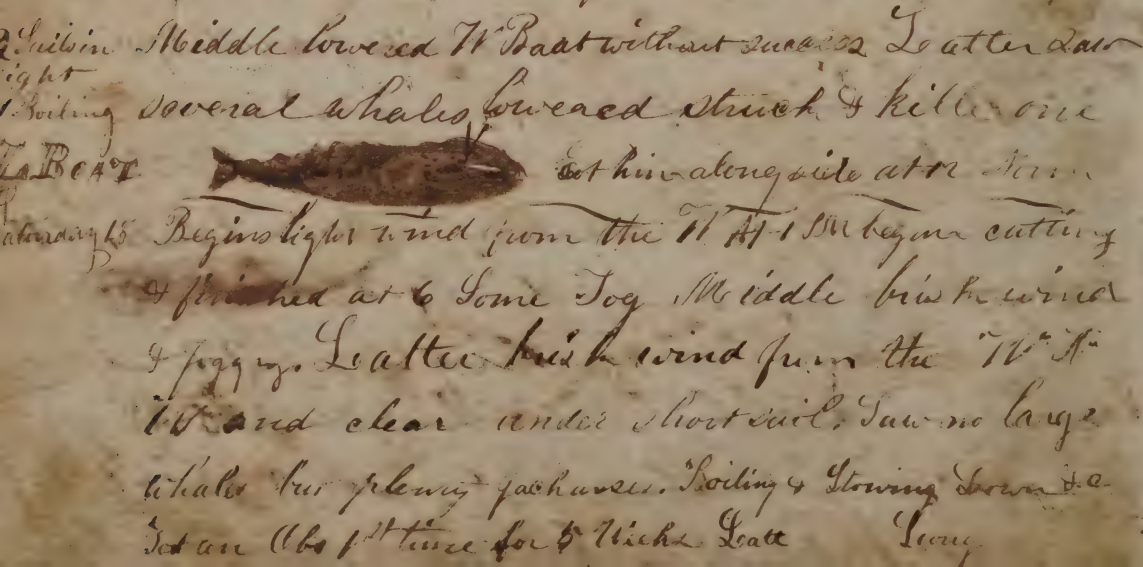 2 Sails in Middle lowered W Boat without success Latter saw
ight
Boiling several whales lowered struck & kille one
La Boat Got him along side at 12
Saturday 15 Begins light wind from the W At 1 PM began cutting
& finished at 6 Some Fog Middle brisk wind
& foggy. Latter brisk wind from the W N
W and clear under short sail. Saw no large
whales but plenty jackasses. Boiling & Stowing Down &c
Got an Obs 1st time for 5 Weeks Latt Long